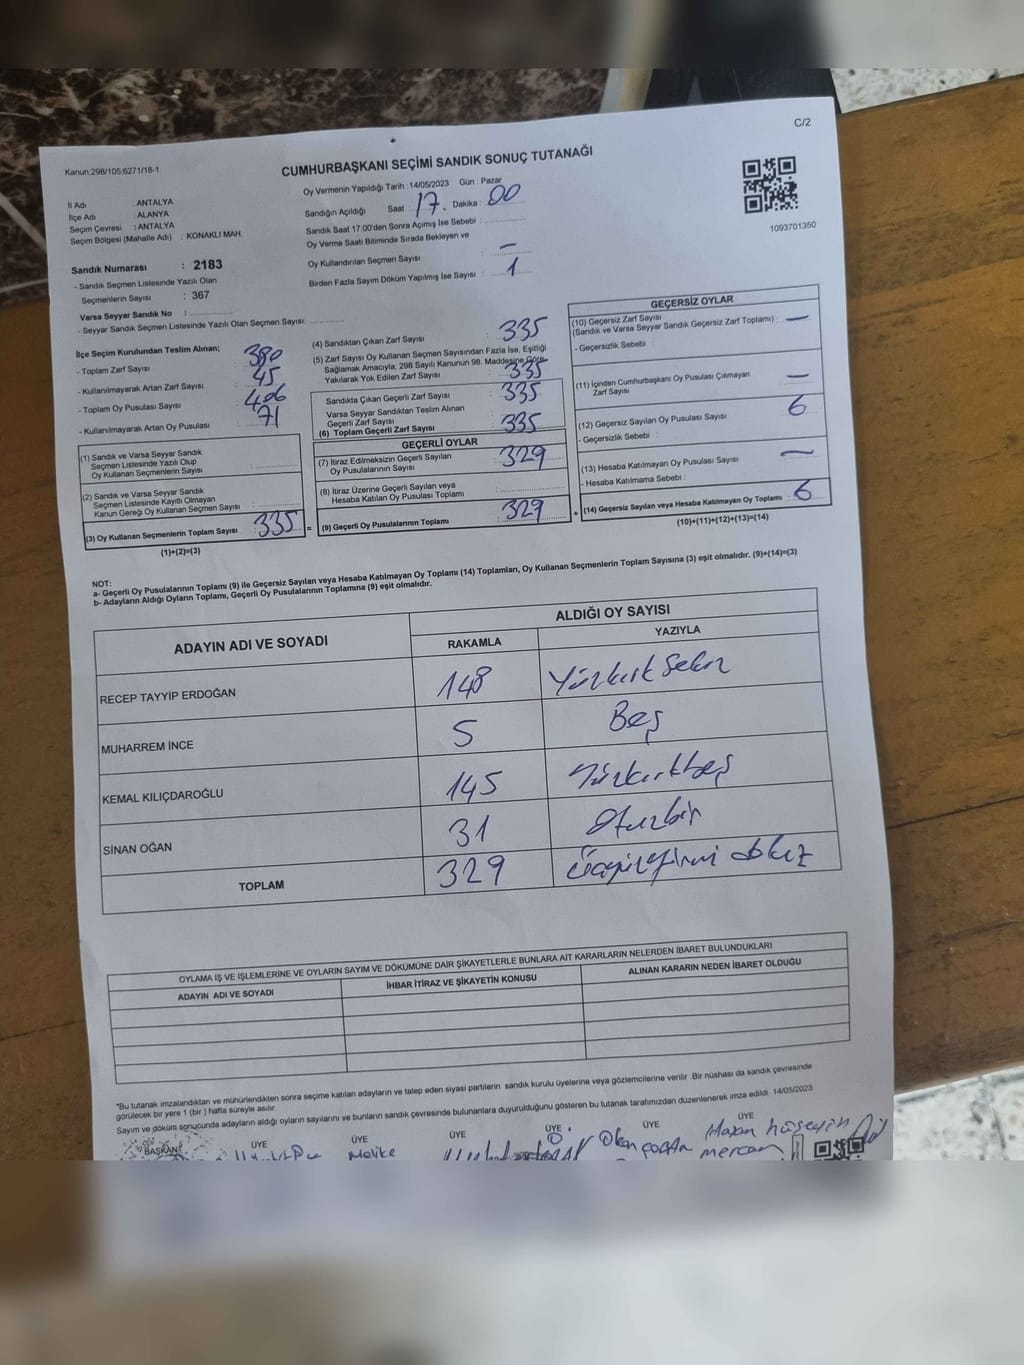 C/2
Kanun 298/105,6271/18-1
CUMHURBAŞKANI SEÇİMİ SANDIK SONUÇ TUTANAĞI
Oy Vermenin Yapıldığı Tarih :14/05/2023 Gün : Pazar
Sandığın Açıldığı Saat : 17. Dakika : 00
Sandık Saat 17.00'den Sonra Açımış İse Sebebi :
Oy Verme Saati Bitiminde Sırada Bekleyen ve
Oy Kullandırılan Seçmen Sayısı : –
Birden Fazla Sayım Döküm Yapılmış İse Sayısı : 1
1093701350
İl Adı : ANTALYA
İlçe Adı : ALANYA
Seçim Çevresi : ANTALYA
Seçim Bölgesi (Mahalle Adı) : KONAKLI MAH.
Sandık Numarası : 2183
- Sandık Seçmen Listesinde Yazılı Olan
Seçmenlerin Sayısı : 367
Varsa Seyyar Sandık No :
- Seyyar Sandık Seçmen Listesinde Yazılı Olan Seçmen Sayısı:
İlçe Seçim Kurulundan Teslim Alınan;
- Toplam Zarf Sayısı : 380
- Kullanılmayarak Artan Zarf Sayısı : 45
- Toplam Oy Pusulası Sayısı : 406
- Kullanılmayarak Artan Oy Pusulası : 71
(1) Sandık ve Varsa Seyyar Sandık
Seçmen Listesinde Yazılı Olup
Oy Kullanan Seçmenlerin Sayısı :
(2) Sandık ve Varsa Seyyar Sandık
Seçmen Listesinde Kayıtlı Olmayan
Kanun Gereği Oy Kullanan Seçmen Sayısı :
(3) Oy Kullanan Seçmenlerin Toplam Sayısı : 335 =
(1)+(2)=(3)
(4) Sandıktan Çıkan Zarf Sayısı : 335
(5) Zarf Sayısı Oy Kullanan Seçmen Sayısından Fazla İse, Eşitliği
Sağlamak Amacıyla, 298 Sayılı Kanunun 98. Maddesine Göre
Yakılarak Yok Edilen Zarf Sayısı : 335
Sandıkta Çıkan Geçerli Zarf Sayısı : 335
Varsa Seyyar Sandıktan Teslim Alınan
Geçerli Zarf Sayısı
(6) Toplam Geçerli Zarf Sayısı : 335
GEÇERLİ OYLAR
(7) İtiraz Edilmeksizin Geçerli Sayılan
Oy Pusulalarının Sayısı : 329
(8) İtiraz Üzerine Geçerli Sayılan veya
Hesaba Katılan Oy Pusulası Toplamı :
(9) Geçerli Oy Pusulalarının Toplamı : 329 +
GEÇERSİZ OYLAR
(10) Geçersiz Zarf Sayısı
(Sandık ve Varsa Seyyar Sandık Geçersiz Zarf Toplamı) : —
- Geçersizlik Sebebi :
(11) İçinden Cumhurbaşkanı Oy Pusulası Çıkmayan
Zarf Sayısı : —
(12) Geçersiz Sayılan Oy Pusulası Sayısı : 6
- Geçersizlik Sebebi :
(13) Hesaba Katılmayan Oy Pusulası Sayısı : —
- Hesaba Katılmama Sebebi :
(14) Geçersiz Sayılan veya Hesaba Katılmayan Oy Toplamı : 6
(10)+(11)+(12)+(13)=(14)
NOT:
a- Geçerli Oy Pusulalarının Toplamı (9) ile Geçersiz Sayılan veya Hesaba Katılmayan Oy Toplamı (14) Toplamları, Oy Kullanan Seçmenlerin Toplam Sayısına (3) eşit olmalıdır. (9)+(14)=(3)
b- Adayların Aldığı Oyların Toplamı, Geçerli Oy Pusulalarının Toplamına (9) eşit olmalıdır.
ADAYIN ADI VE SOYADI ALDIĞI OY SAYISI
RAKAMLA YAZIYLA
RECEP TAYYIP ERDOĞAN 148 Yüzkırk Sekiz
MUHARREM İNCE 5 Beş
KEMAL KILIÇDAROĞLU 145 Yüzkırkbeş
SİNAN OĞAN 31 Otuzbir
TOPLAM 329 Üçyüzyirmi dokuz
OYLAMA İŞ VE İŞLEMLERİNE VE OYLARIN SAYIM VE DÖKÜMÜNE DAİR ŞİKAYETLERLE BUNLARA AİT KARARLARIN NELERDEN İBARET BULUNDUKLARI
ADAYIN ADI VE SOYADI İHBAR İTİRAZ VE ŞİKAYETİN KONUSU ALINAN KARARIN NEDEN İBARET OLDUĞU
*Bu tutanak imzalandıktan ve mühürlendikten sonra seçime katılan adayların ve talep eden siyasi partilerin sandık kurulu üyelerine veya gözlemcilerine verilir. Bir nüshası da sandık çevresinde
görülecek bir yere 1 (bir ) hafta süreyle asılır.
Sayım ve döküm sonucunda adayların aldığı oyların sayılarını ve bunların sandık çevresinde bulunanlara duyurulduğunu gösteren bu tutanak tarafımızdan düzenlenerek imza edildi. 14/05/2023
BAŞKAN ÜYE ÜYE ÜYE ÜYE ÜYE ÜYE
Melike Okan Hasan hüseyin
mercan